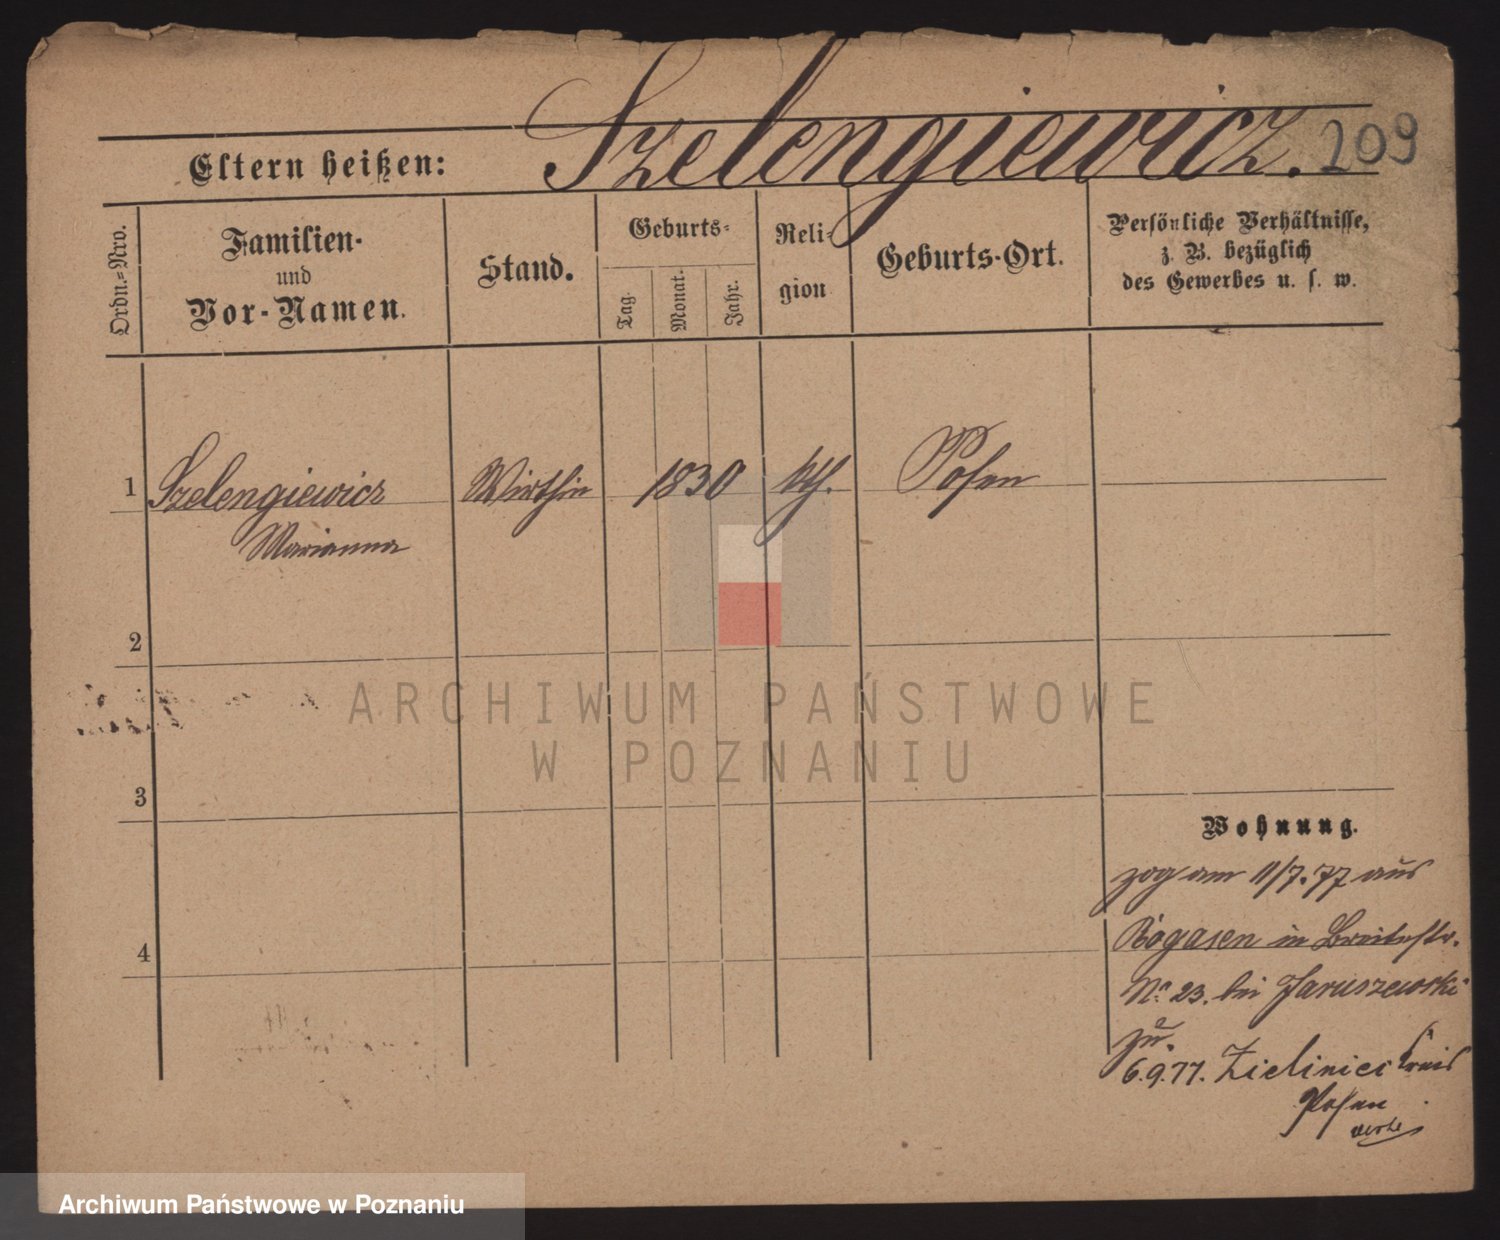 Szelengiewicz. 209
Eltern heißen:
Ordn.-Nro.
Familien-
und
Vor-Namen.
Stand.
Geburts-
Tag.
Monat.
Jahr.
Reli-
gion
Geburts-Ort.
Persönliche Verhältnisse,
z. B. bezüglich
des Gewerbes u. s. w.
1 Szelengiewicz Wirthin 1830 kth. Posen
Marianna
2
3
4
ARCHIWUM PAŃSTWOWE
W POZNANIU
Wohnung.
zog am 11/7.77 aus
Rogasen in Breitestr.
No 23. bei Jaruszewski
zu.
6.9.77. Zieliniec Kreis
Posen
Archiwum Państwowe w Poznaniu